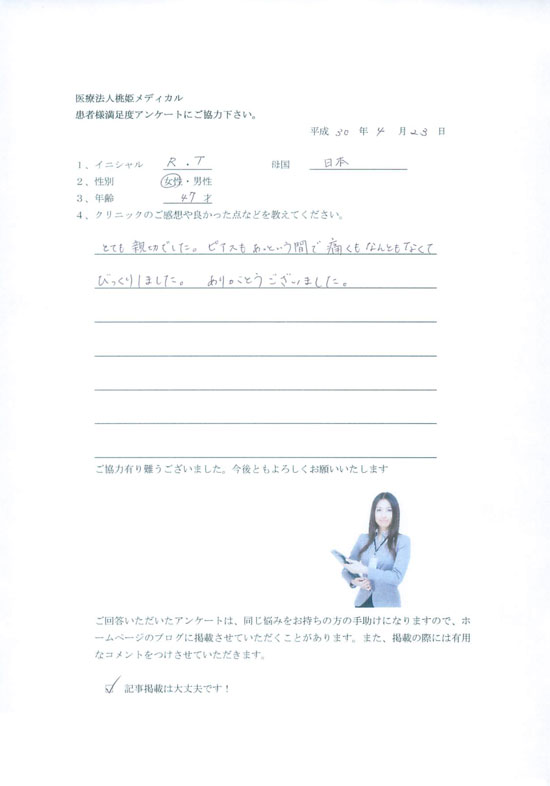 医療法人桃姫メディカル
患者様満足度アンケートにご協力下さい。
平成 30 年 4 月 23 日
1、イニシャル R.T 母国 日本
2、性別 女性・男性
3、年齢 47才
4、クリニックのご感想や良かった点などを教えてください。
とても親切でした。ピアスもあっという間で痛くもなんともなくて
びっくりしました。 ありがとうございました。
ご協力有り難うございました。今後ともよろしくお願いいたします
ご回答いただいたアンケートは、同じ悩みをお持ちの方の手助けになりますので、ホ
ームページのブログに掲載させていただくことがあります。また、掲載の際には有用
なコメントをつけさせていただきます。
記事掲載は大丈夫です!